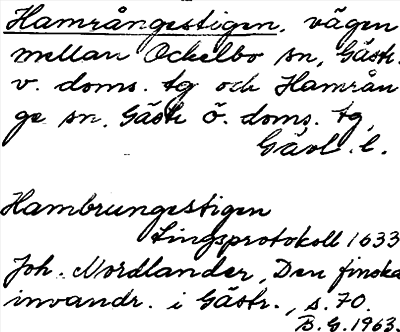 Hamrångestigen, vägen
mellan Ockelbo sn, Gästr.
v. doms. tg och Hamrån
ge sn, Gästr ö. doms. tg,
Gävl. l.
Hambrungestigen
Tingsprotokoll 1633
Joh. Nordlander, Den finska
invandr. i Gästr., s. 70.
B. G. 1963.